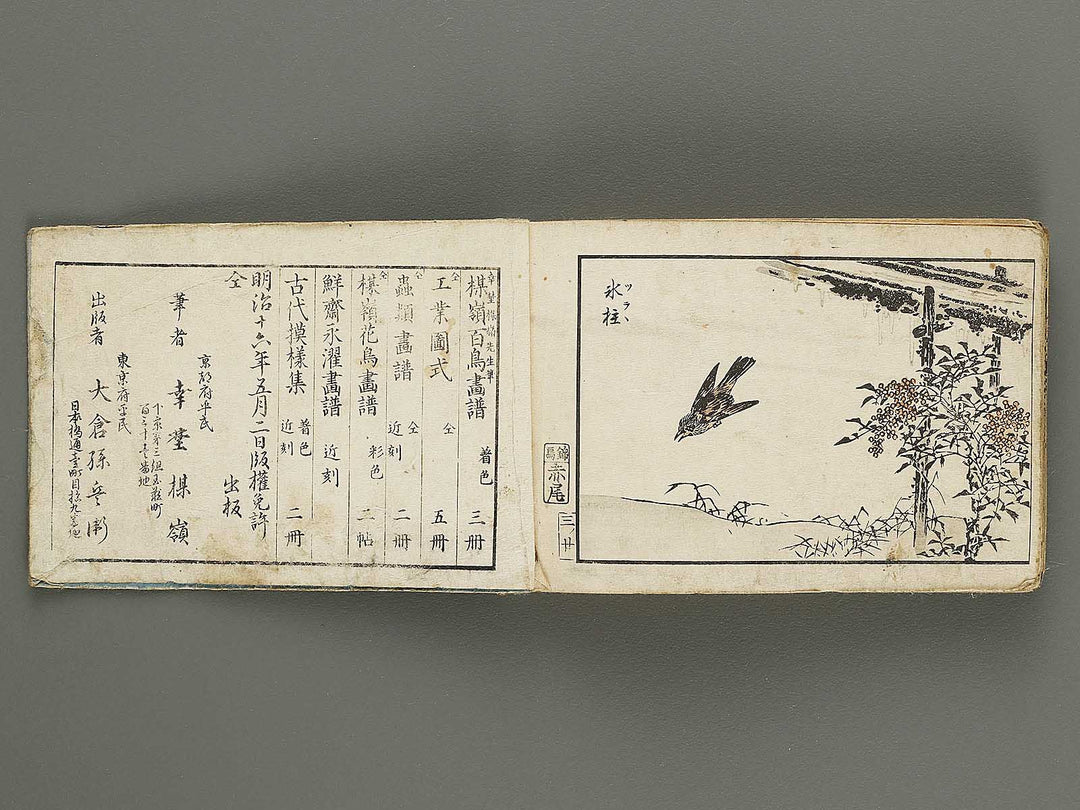 氷柱
ツラヽ
赤尾
三
廿
幸埜楳嶺先生筆
楳嶺百鳥畫譜 着色 三冊
仝
工業圖式 仝 五冊
仝
蟲類畫譜 仝 近刻 二冊
仝
楳嶺花鳥畫譜 彩色 二帖
鮮齋永濯畫譜 近刻
古代摸様集 着色 近刻 二冊
明治十六年五月二日版權免許
仝 出板
京都府平民
筆者 幸埜楳嶺
東京府平民
出版者 大倉孫兵衞
日本橋通壹町目拾九番地